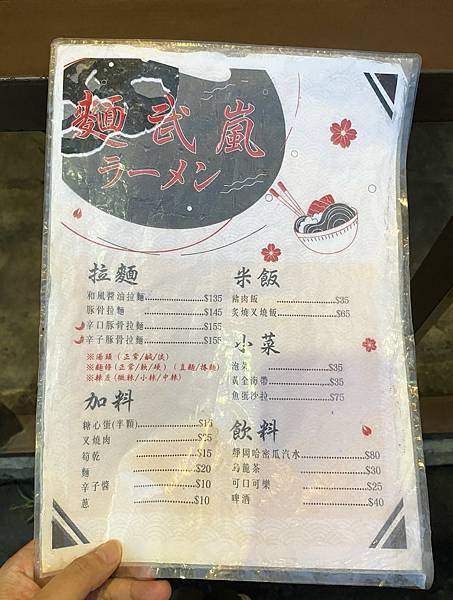 麵武嵐
ラーメン
拉麵
和風醬油拉麵 $135
豚骨拉麵 $145
辛口豚骨拉麵 $155
辛子豚骨拉麵 $155
※湯頭（正常/鹹/淡）
※麵條（正常/軟/硬）（直麵/捲麵）
※辣度（微辣/小辣/中辣）
加料
糖心蛋(半顆) $15
叉燒肉 $25
筍乾 $15
麵 $20
辛子醬 $10
蔥 $10
米飯
豬肉飯 $35
炙燒叉燒飯 $65
小菜
泡菜 $35
黃金海帶 $35
魚蛋沙拉 $75
飲料
靜岡哈密瓜汽水 $80
烏龍茶 $30
可口可樂 $25
啤酒 $40